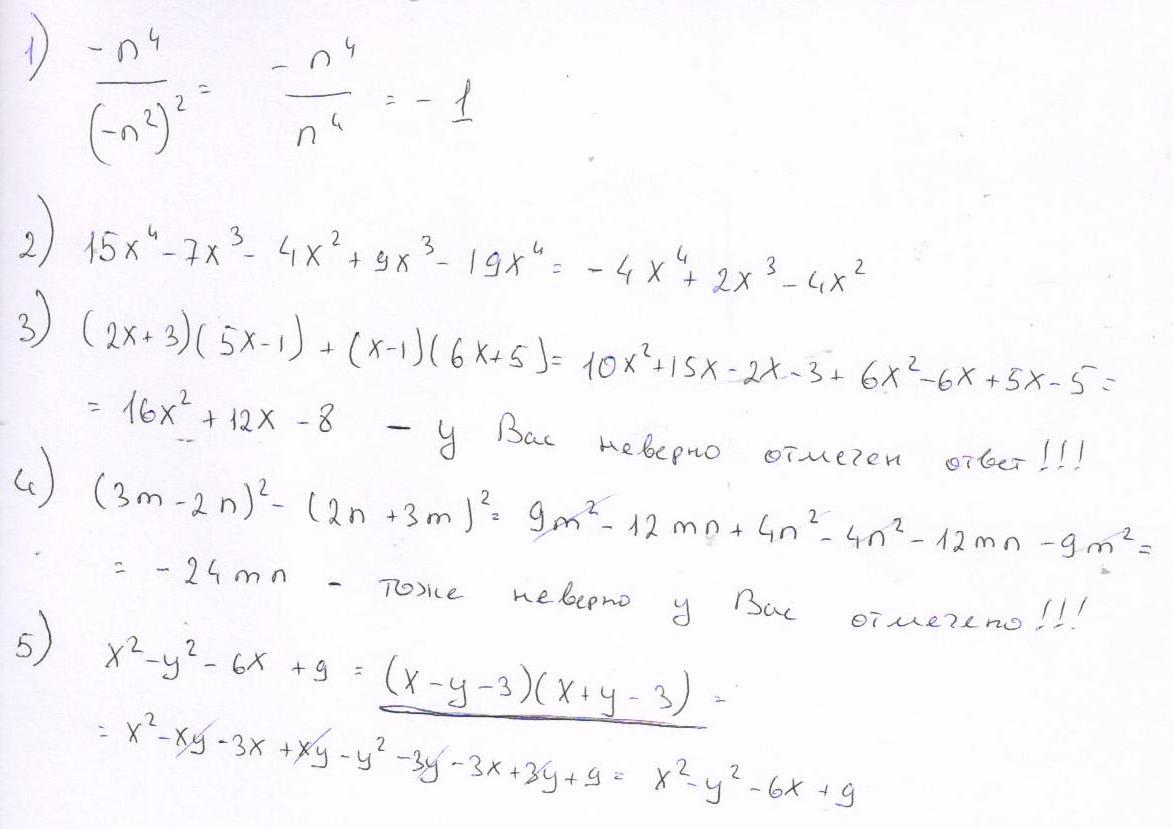 1) -n⁴/(-n²)² = -n⁴/n⁴ = -1
2) 15x⁴ - 7x³ - 4x² + 9x³ - 19x⁴ = -4x⁴ + 2x³ - 4x²
3) (2x+3)(5x-1) + (x-1)(6x+5) = 10x² + 15x - 2x - 3 + 6x² - 6x + 5x - 5 =
= 16x² + 12x - 8 - у Вас неверно отмечен ответ!!!
4) (3m - 2n)² - (2n + 3m)² = 9m² - 12mn + 4n² - 4n² - 12mn - 9m² =
= -24mn - тоже неверно у Вас отмечено!!!
5) x² - y² - 6x + 9 = (x - y - 3)(x + y - 3) =
= x² - xy - 3x + xy - y² - 3y - 3x + 3y + 9 = x² - y² - 6x + 9